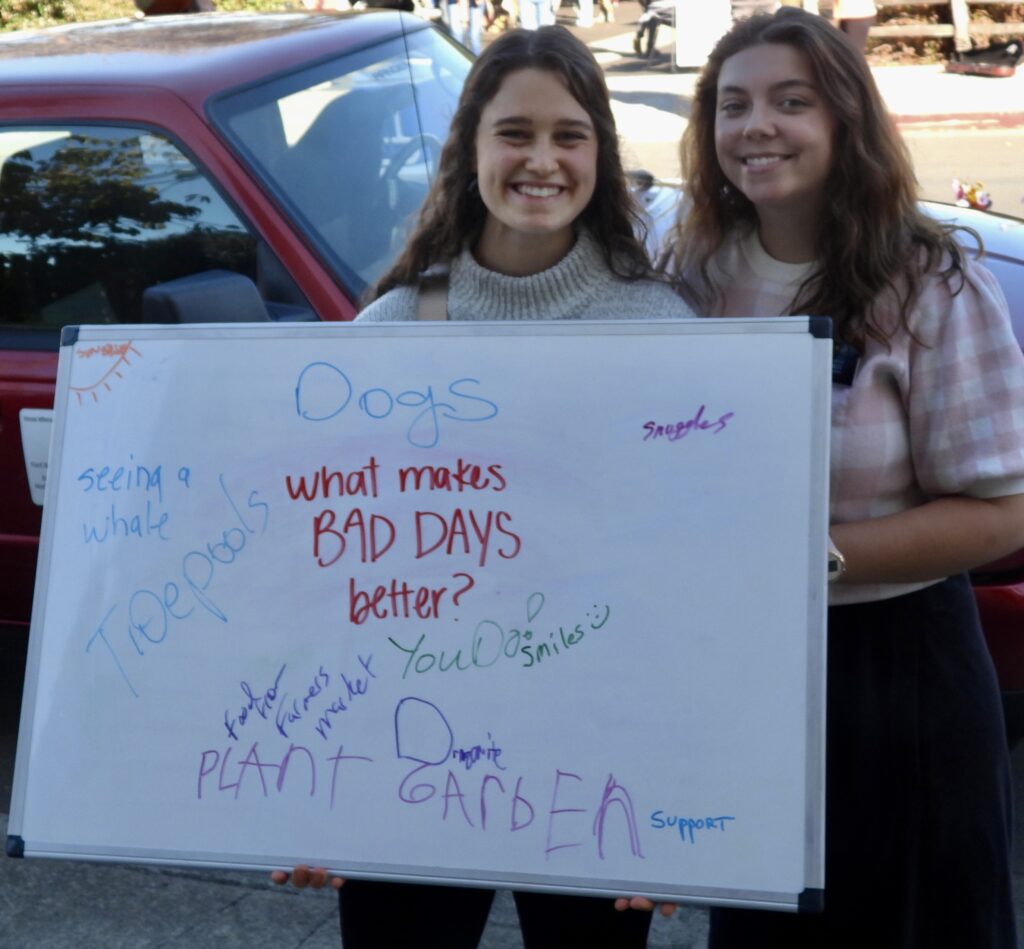 Dogs
snuggles
seeing a
whale
TIDEPOOLS
what makes
BAD DAYS
better?
YOU DO!
smiles :)
food from
Farmers
market
PLANT
GARDEN
SUPPORT